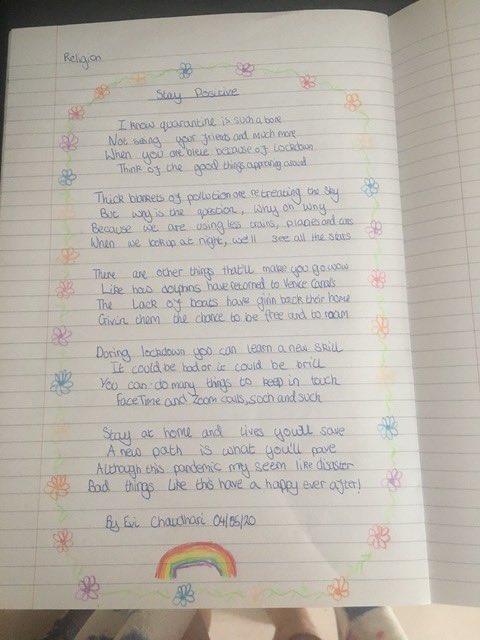 Religion
Stay Positive
I know quarantine is such a bore
Not seeing your friends and much more
When you are blue because of lockdown
Think of the good things appering aroud
Thick blankets of pollution are retreating the sky
But way is the question, why oh why
Because we are using less trains, planes and cars
When we look up at night, we'll see all the stars
There are other things that'll make you go wow
Like how dolphins have returned to Venice Canals
The lack of boats have givin back their home
Givin them the chance to be free and to roam
During lockdown you can learn a new skill
It could be bad or it could be brill
You can do many things to keep in touch
FaceTime and Zoom calls, such and such
Stay at home and lives you'll save
A new path is what you'll pave
Although this pandemic my seem like disaster
Bad things like this have a happy ever after!
By Evi Chaudhari 04/05/20